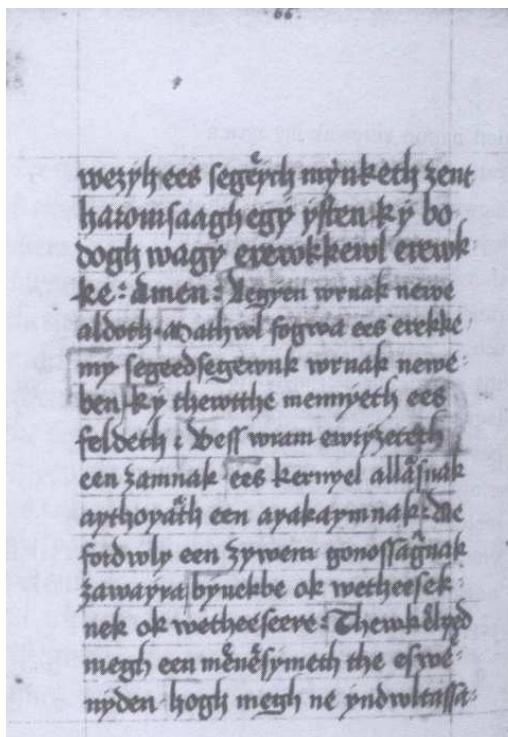 66.
wezyh ees segeÿch mÿnketh zent
haromsaagh egÿ ÿsten kÿ bo
dogh wagÿ erewkkewl erewk
ke: Amen: Legyen wrnak newe
aldoth. Mathwl fogwa ees erekke
mÿ segeedsegewnk wrnak newe
ben, kÿ thewtthe mennyeth ees
feldeth: Vess wram ewrÿzeteth
een zamnak ees kernyel allasnak
aythoyath een ayakaymnak: Ne
fordwly een zywem gonossagnak
zawayra bynekbe ok wetheesek
nek ok wetheeseere: Thewkelyed
megh een menesymeth the eswe
nyden hogh megh ne yndwltassa